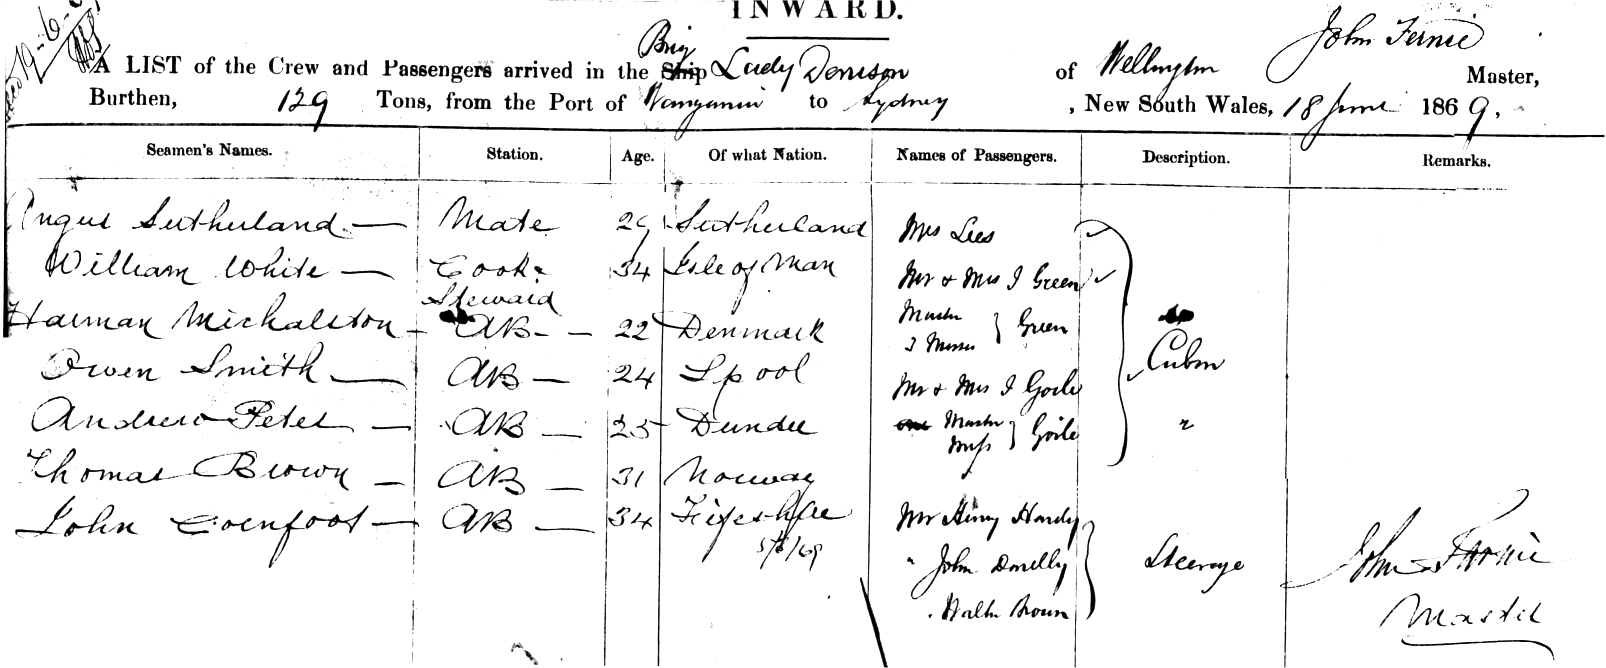 INWARD.
Brig John Fernie
A LIST of the Crew and Passengers arrived in the Ship Lady Denison of Wellington Master,
Burthen, 129 Tons, from the Port of Wanganui to Sydney , New South Wales, 18 June 1869.
Seamen's Names. Station. Age. Of what Nation. Names of Passengers. Description. Remarks.
Angus Sutherland — Mate 29 Sutherland Mrs Lees
William White — Cook & 34 Isle of Man Mr & Mrs J Green
Steward
Harman Michalston - AB - 22 Denmark Master 3 Misses } Green
Owen Smith — AB — 24 Lpool Mr & Mrs J Goile Cabin
Andrew Peter — AB — 25 Dundee Master Miss } Goile "
Thomas Brown — AB — 31 Norway
John Cornfoot — AB — 34 Fifeshire Mr Henry Hardy
" John Donelly Steerage John Fernie
" Walter Brown Master